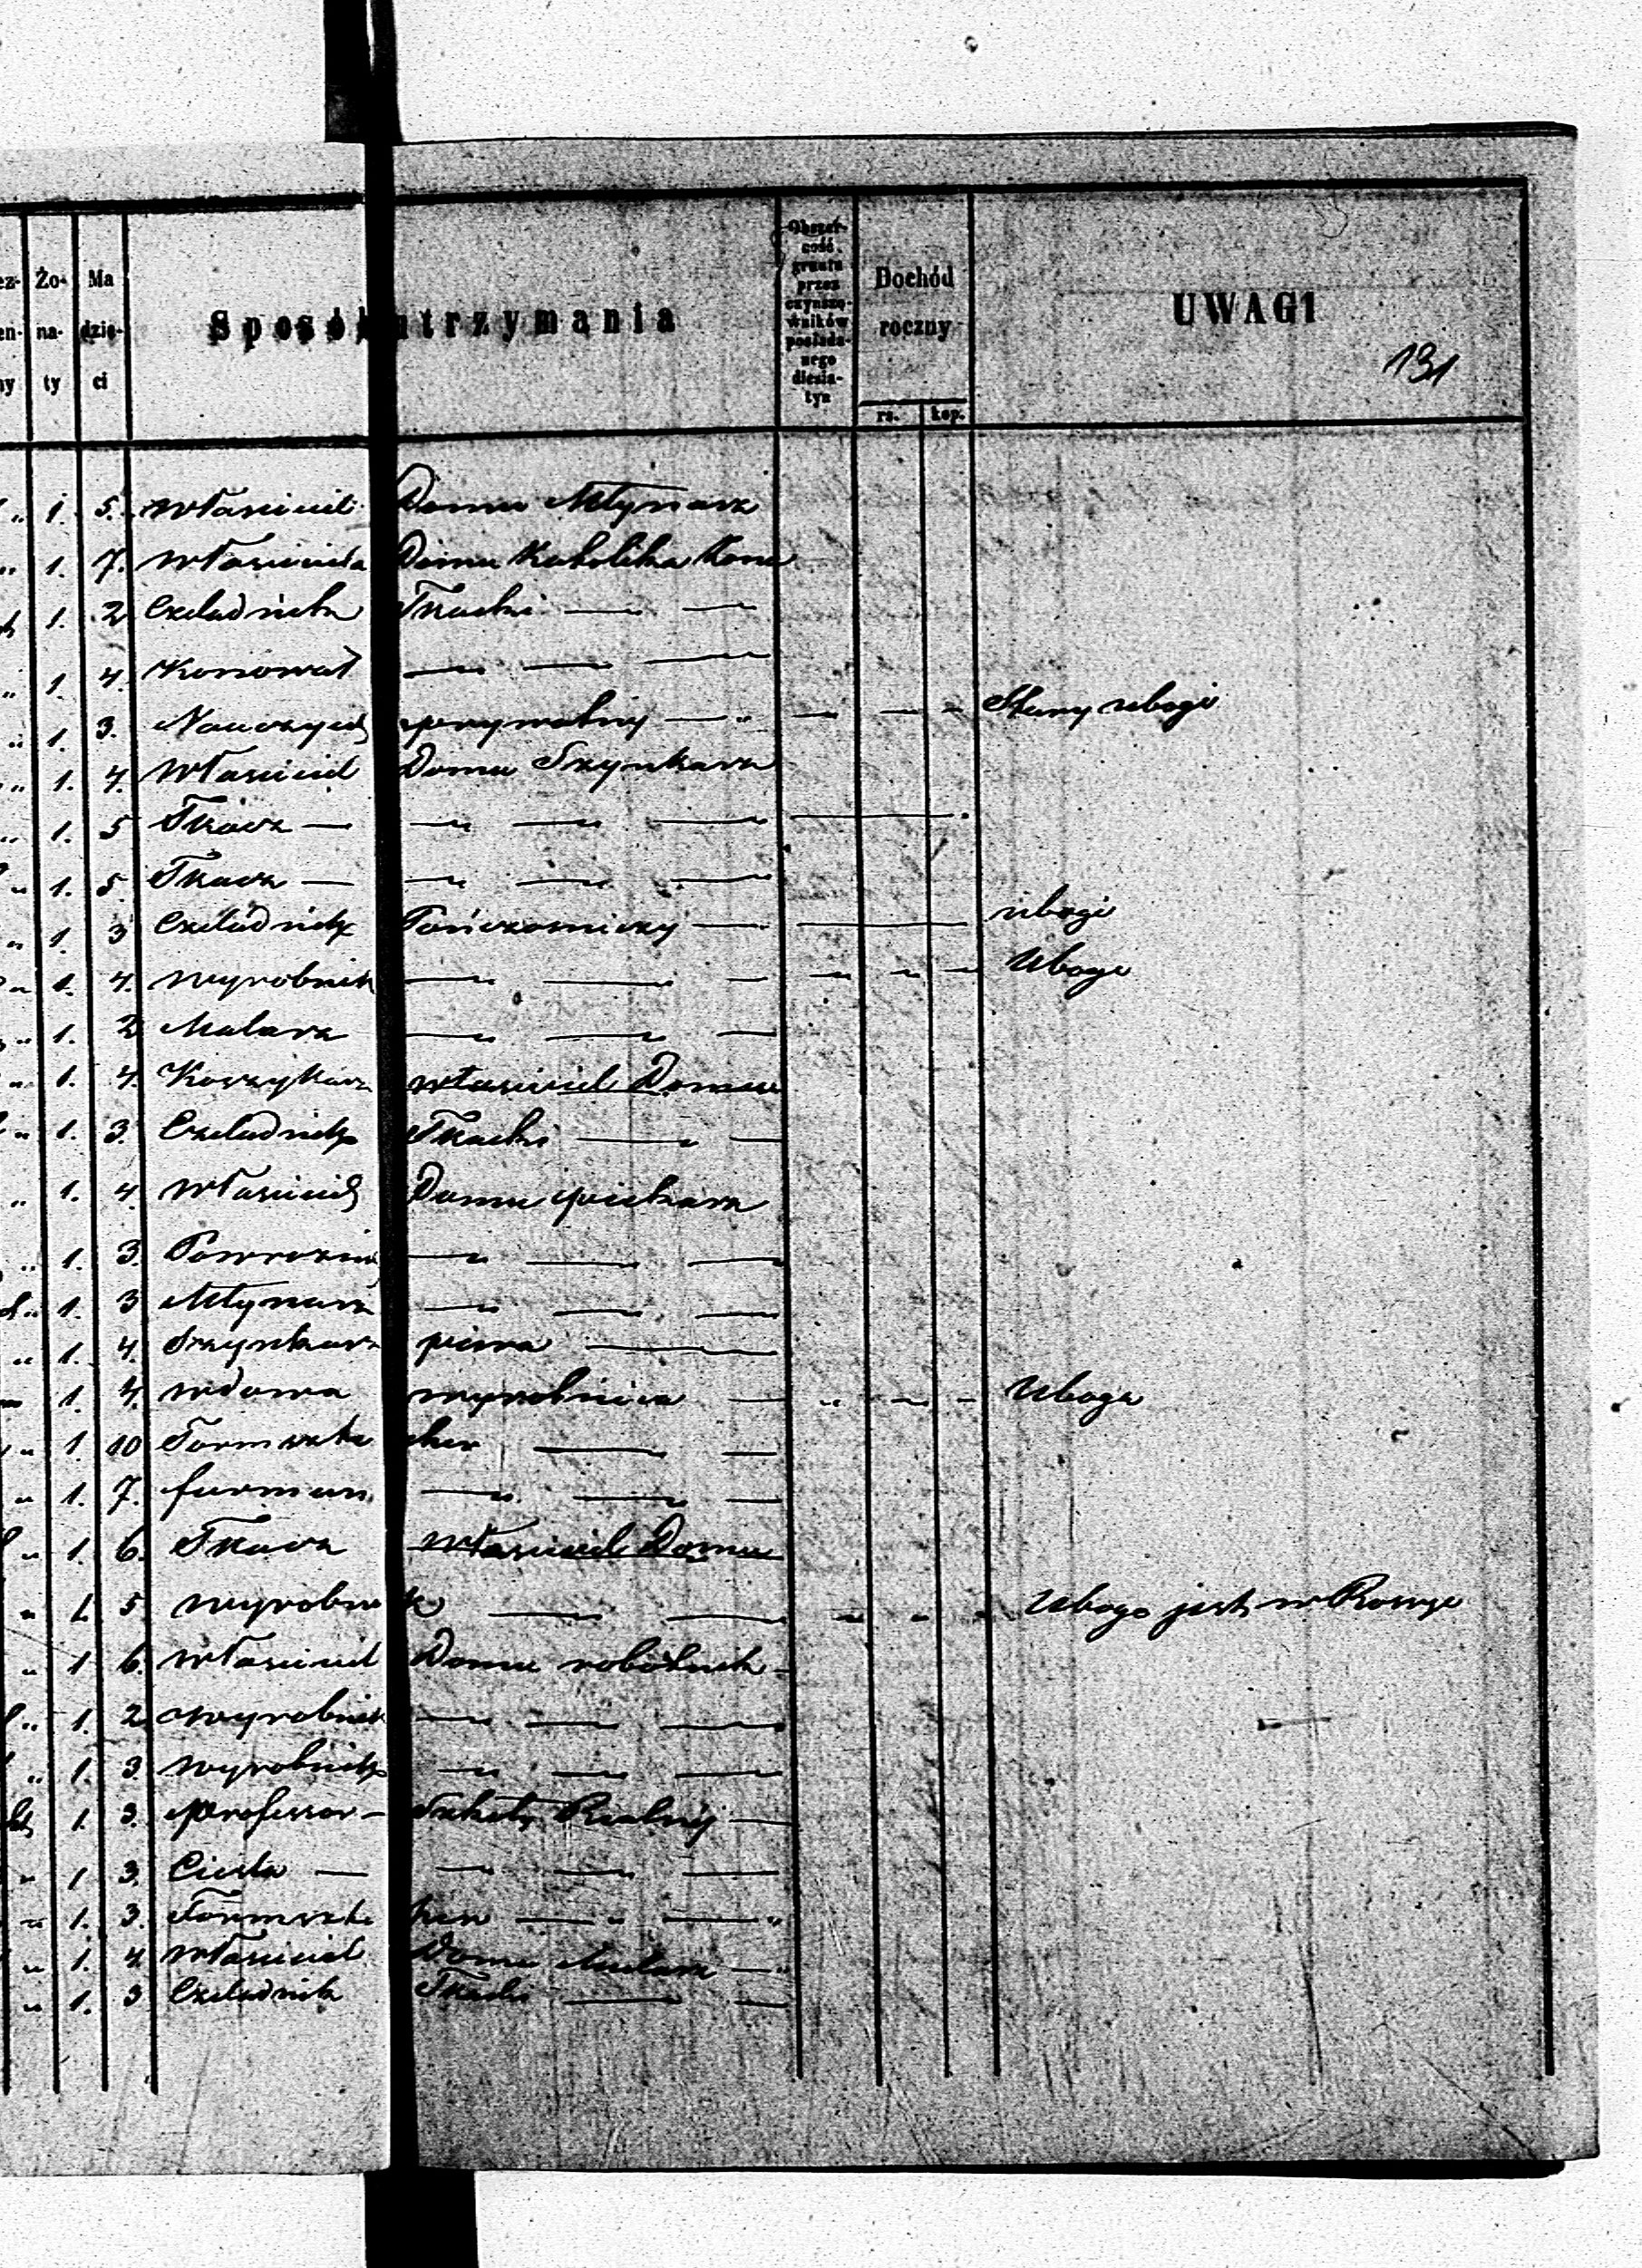 ez- Żo- Ma
en- na- dzie-
ny ty ci
Sposób utrzymania
Obszer-
ność
gruntu
przez
czynszo-
wników
posiada-
nego
diesia-
tyn
Dochód
roczny
rs. kop.
UWAGI
131
" 1. 5. właściciel Domu Młynarz
" 1. 7. właściciela Domu Katolika żona
1. 2 Czeladnik Tkacki — —
" 1. 4. Konował — — —
" 1. 3. Nauczyciel prywatny — " — — - Stary ubogi
" 1. 4. Właściciel Domu Szynkarz
" 1. 5 Tkacz — — — — —
" 1. 5. Tkacz — — — —
" 1. 3 Czeladnik Pończoszniczy — — ubogi
" 1. 4. wyrobnik — — — - - - Ubogi
" 1. 2 Malarz — — —
" 1. 4. Koszykarz właściciel Domu
" 1. 3. Czeladnik Tkacki — —
" 1. 4. Właściciel Domu piekarz
" 1. 3. Powroźnik — — —
" 1. 3 Młynarz — — —
" 1. 4. Szynkarz piwa —
1. 4. wdowa wyrobnica — " - - Uboga
" 1. 10 Formszte cher — —
" 1. 7. furman — — —
" 1. 6. Tkacz właściciel Domu
" 1. 5 wyrobni k — — - - - Ubogo jest w Rossyi
" 1 6. właściciel Domu robotnik -
" 1. 2 wyrobnik — — —
" 1. 3. wyrobnik — — —
1. 3. professor — Szkoły Realnéj —
" 1 3. Cieśla — — — —
" 1. 3. Formszte cher — " — "
" 1. 4. właściciel Domu Mularz — "
" 1. 3 Czeladnik Tkacki — —